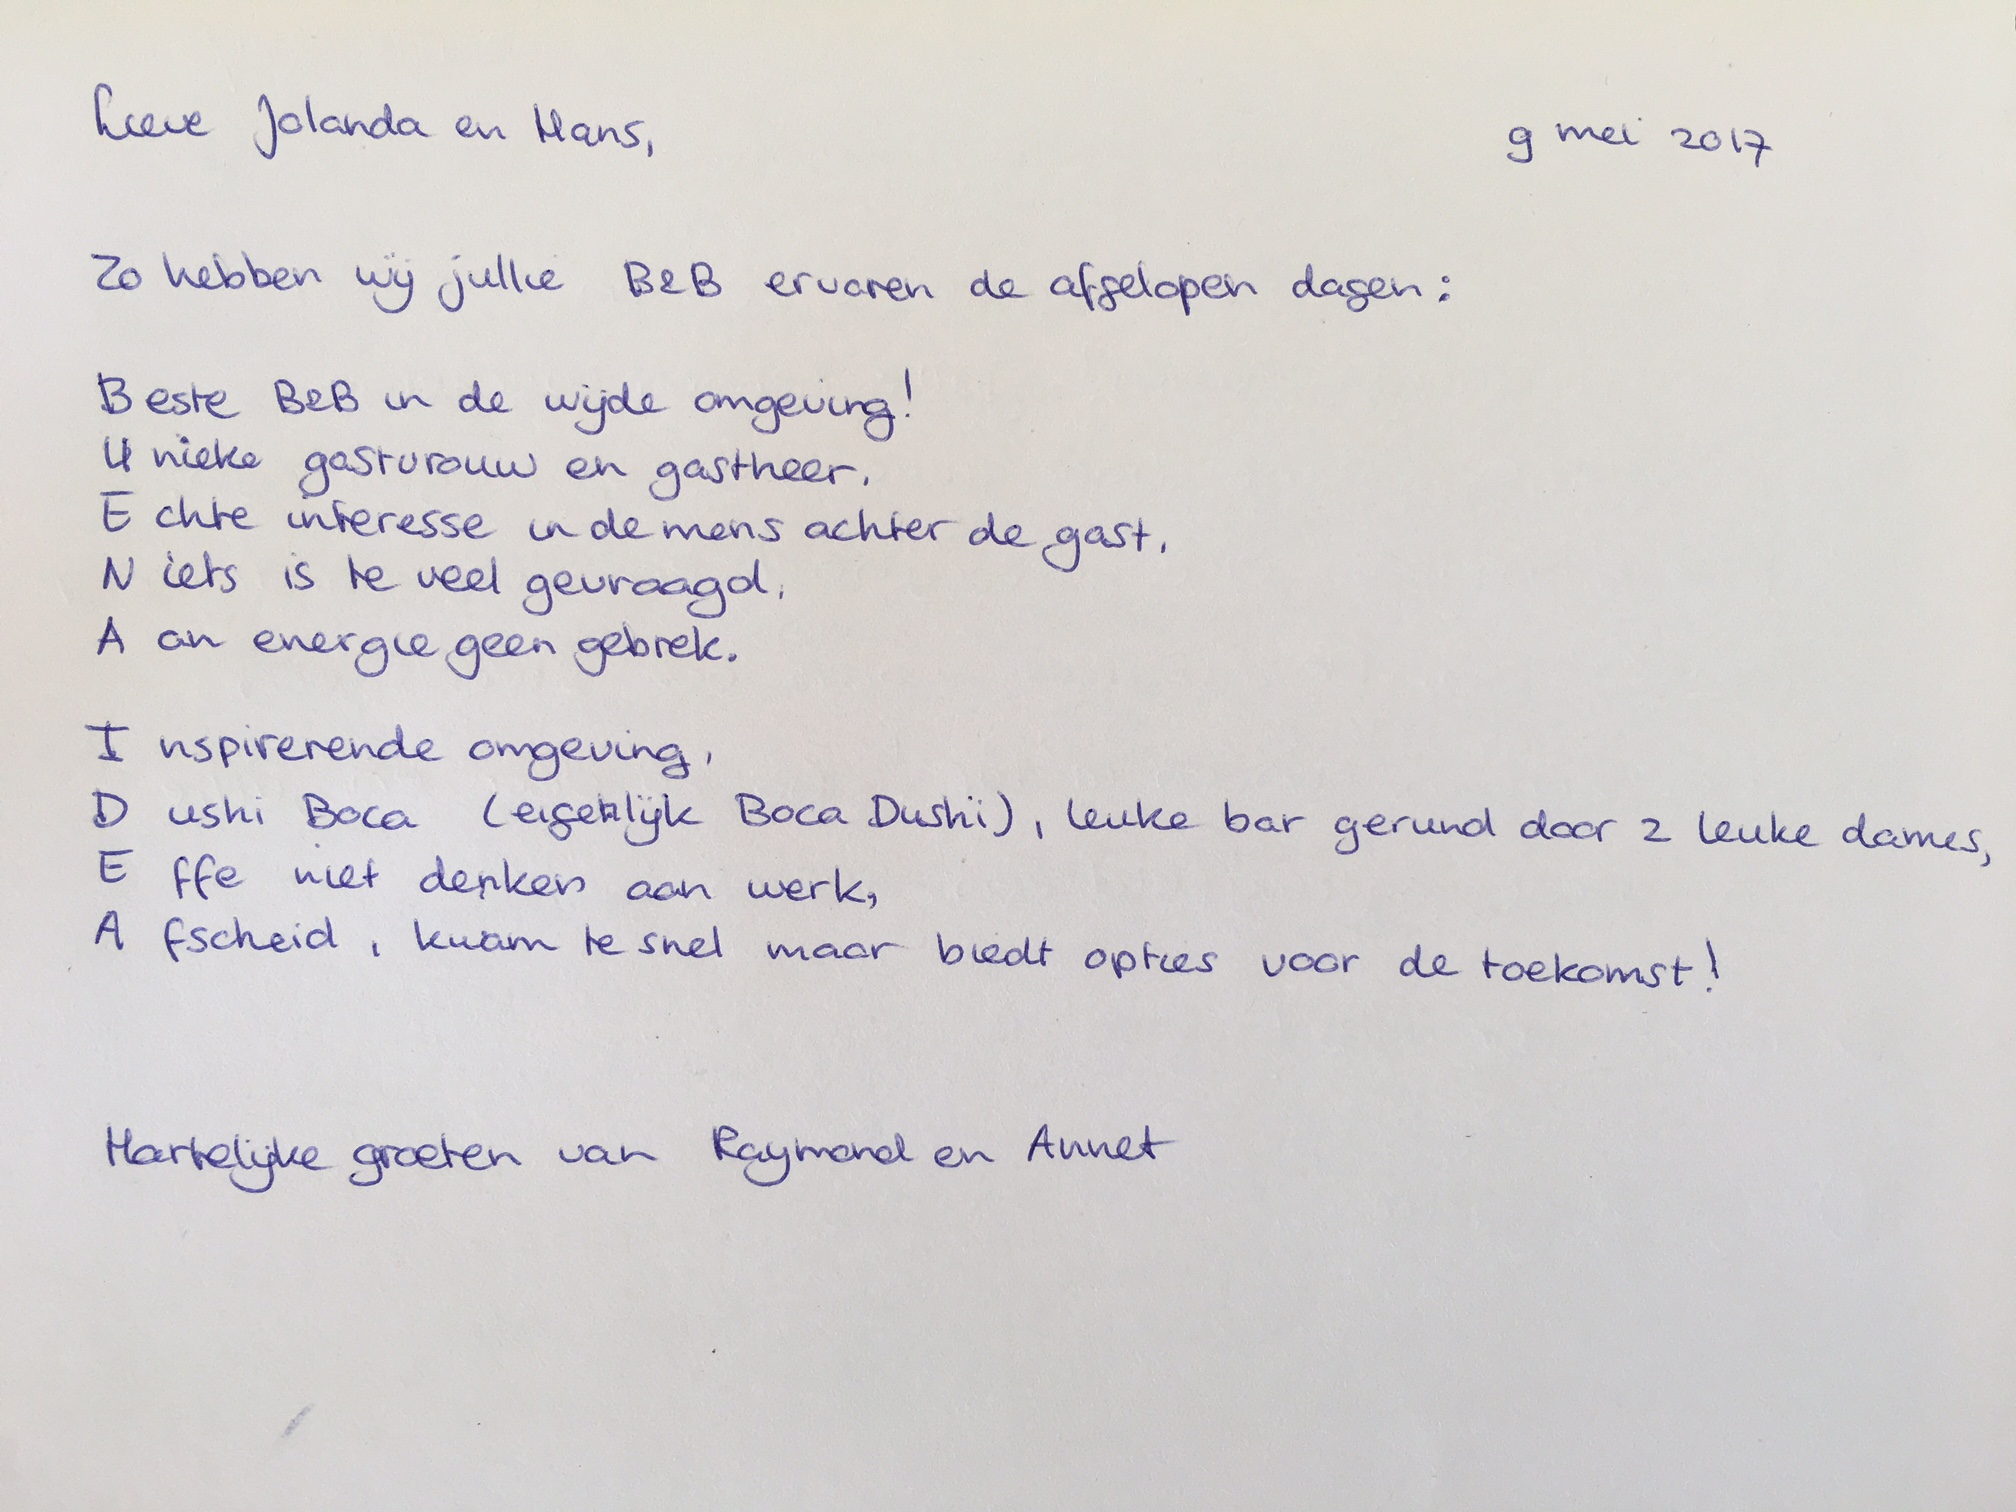 Lieve Jolanda en Hans,
9 mei 2017
Zo hebben wij jullie B&B ervaren de afgelopen dagen:
Beste B&B in de wijde omgeving!
Unieke gastvrouw en gastheer,
Echte interesse in de mens achter de gast,
Niets is te veel gevraagd,
Aan energie geen gebrek.
Inspirerende omgeving,
Dushi Boca (eigenlijk Boca Dushi), leuke bar gerund door 2 leuke dames,
Effe niet denken aan werk,
Afscheid, kwam te snel maar biedt opties voor de toekomst!
Hartelijke groeten van Raymond en Annet